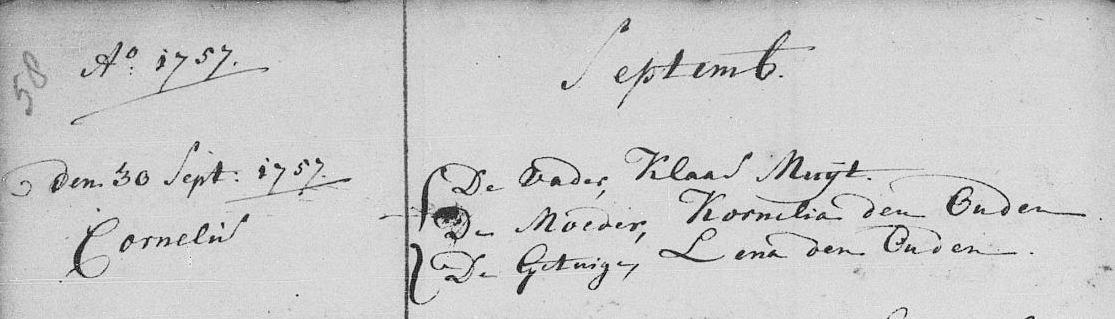 58
Aº. 1757.
Septemb.
den 30 Sept: 1757.
Cornelis
De Vader, Klaas Muijt.
De Moeder, Kornelia den Ouden.
De Getuige, Lena den Ouden.